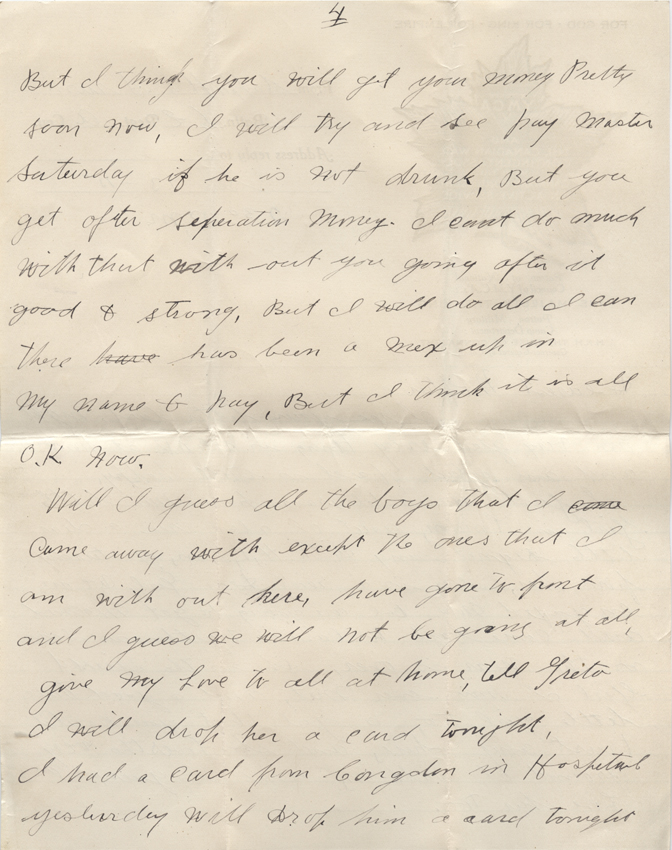 4
But I think you will get your money Pretty
soon now, I will try and see pay Master
Saturday if he is not drunk, But you
get after seperation Money. I cant do much
with that with-out you going after it
good & strong, But I will do all I can
there have has been a mex up in
My name & pay, But I think it is all
O.K. Now.
Will I guess all the boys that I came
Came away with except the ones that I
am with out here, have gone to front
and I guess we will not be going at all,
give My Love to all at home, tell Greta
I will drop her a card tonight,
I had a card from Congdon in Hospital
yesterday Will Drop him a card tonight